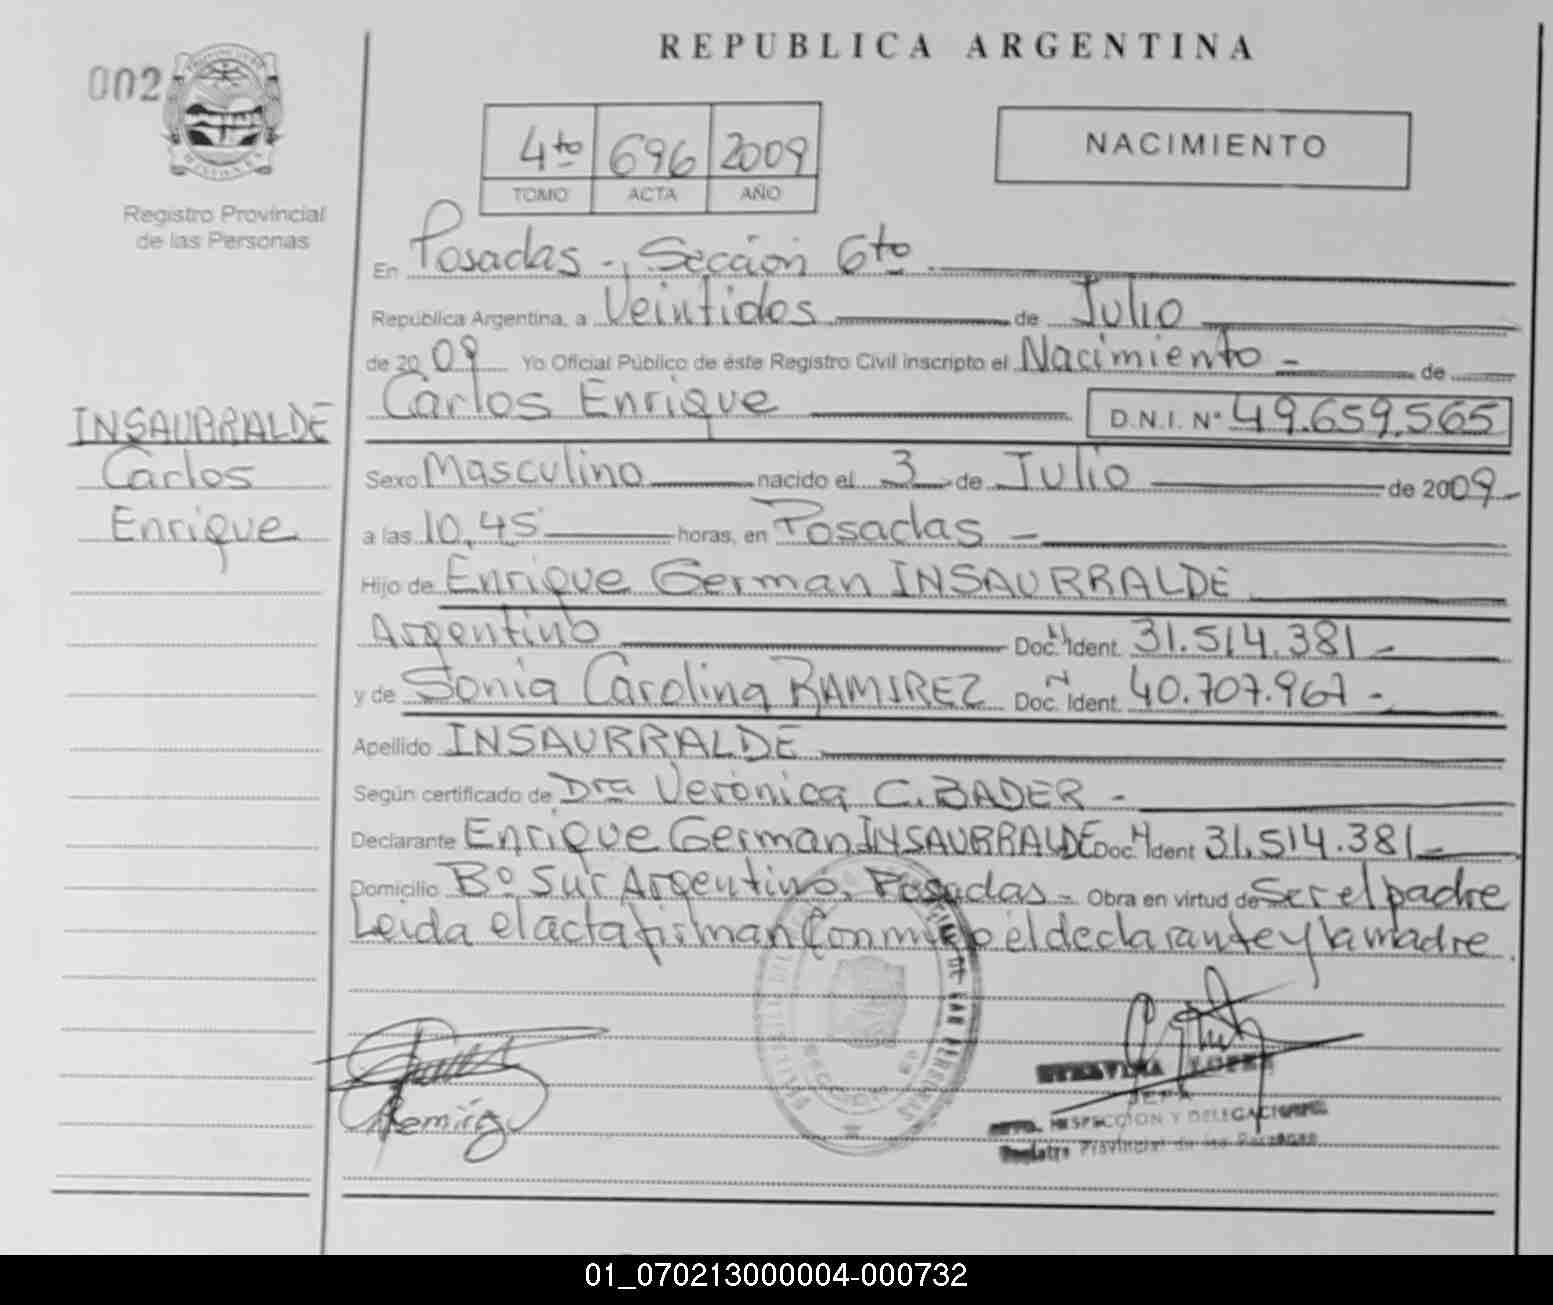 REPUBLICA ARGENTINA
002
PROVINCIA DE
MISIONES
Registro Provincial
de las Personas
4to 696 2009
TOMO ACTA AÑO
NACIMIENTO
En Posadas -, Sección 6to
República Argentina, a Veintidos de Julio
de 2009 Yo Oficial Público de éste Registro Civil inscripto el Nacimiento - de
Carlos Enrique D.N.I. Nº 49.659.565
INSAURRALDE
Carlos
Enrique
Sexo Masculino nacido el 3 de Julio de 2009-
a las 10,45 horas, en Posadas -
Hijo de Enrique German INSAURRALDE
Argentino Doc. Ident. 31.514.381-
y de Sonia Carolina RAMIREZ Doc. Ident. 40.707.967-
Apellido INSAURRALDE
Según certificado de Dra Verónica C. BADER -
Declarante Enrique German INSAURRALDE Doc. Ident 31.514.381-
Domicilio Bº Sur Argentino, Posadas - Obra en virtud de Ser el padre
Leida el acta firman Conmigo él declarante y la madre.
LOPEZ
JEFA
DPTO. INSPECCION Y DELEGACIONES
Registro Provincial de las Personas
01_070213000004-000732